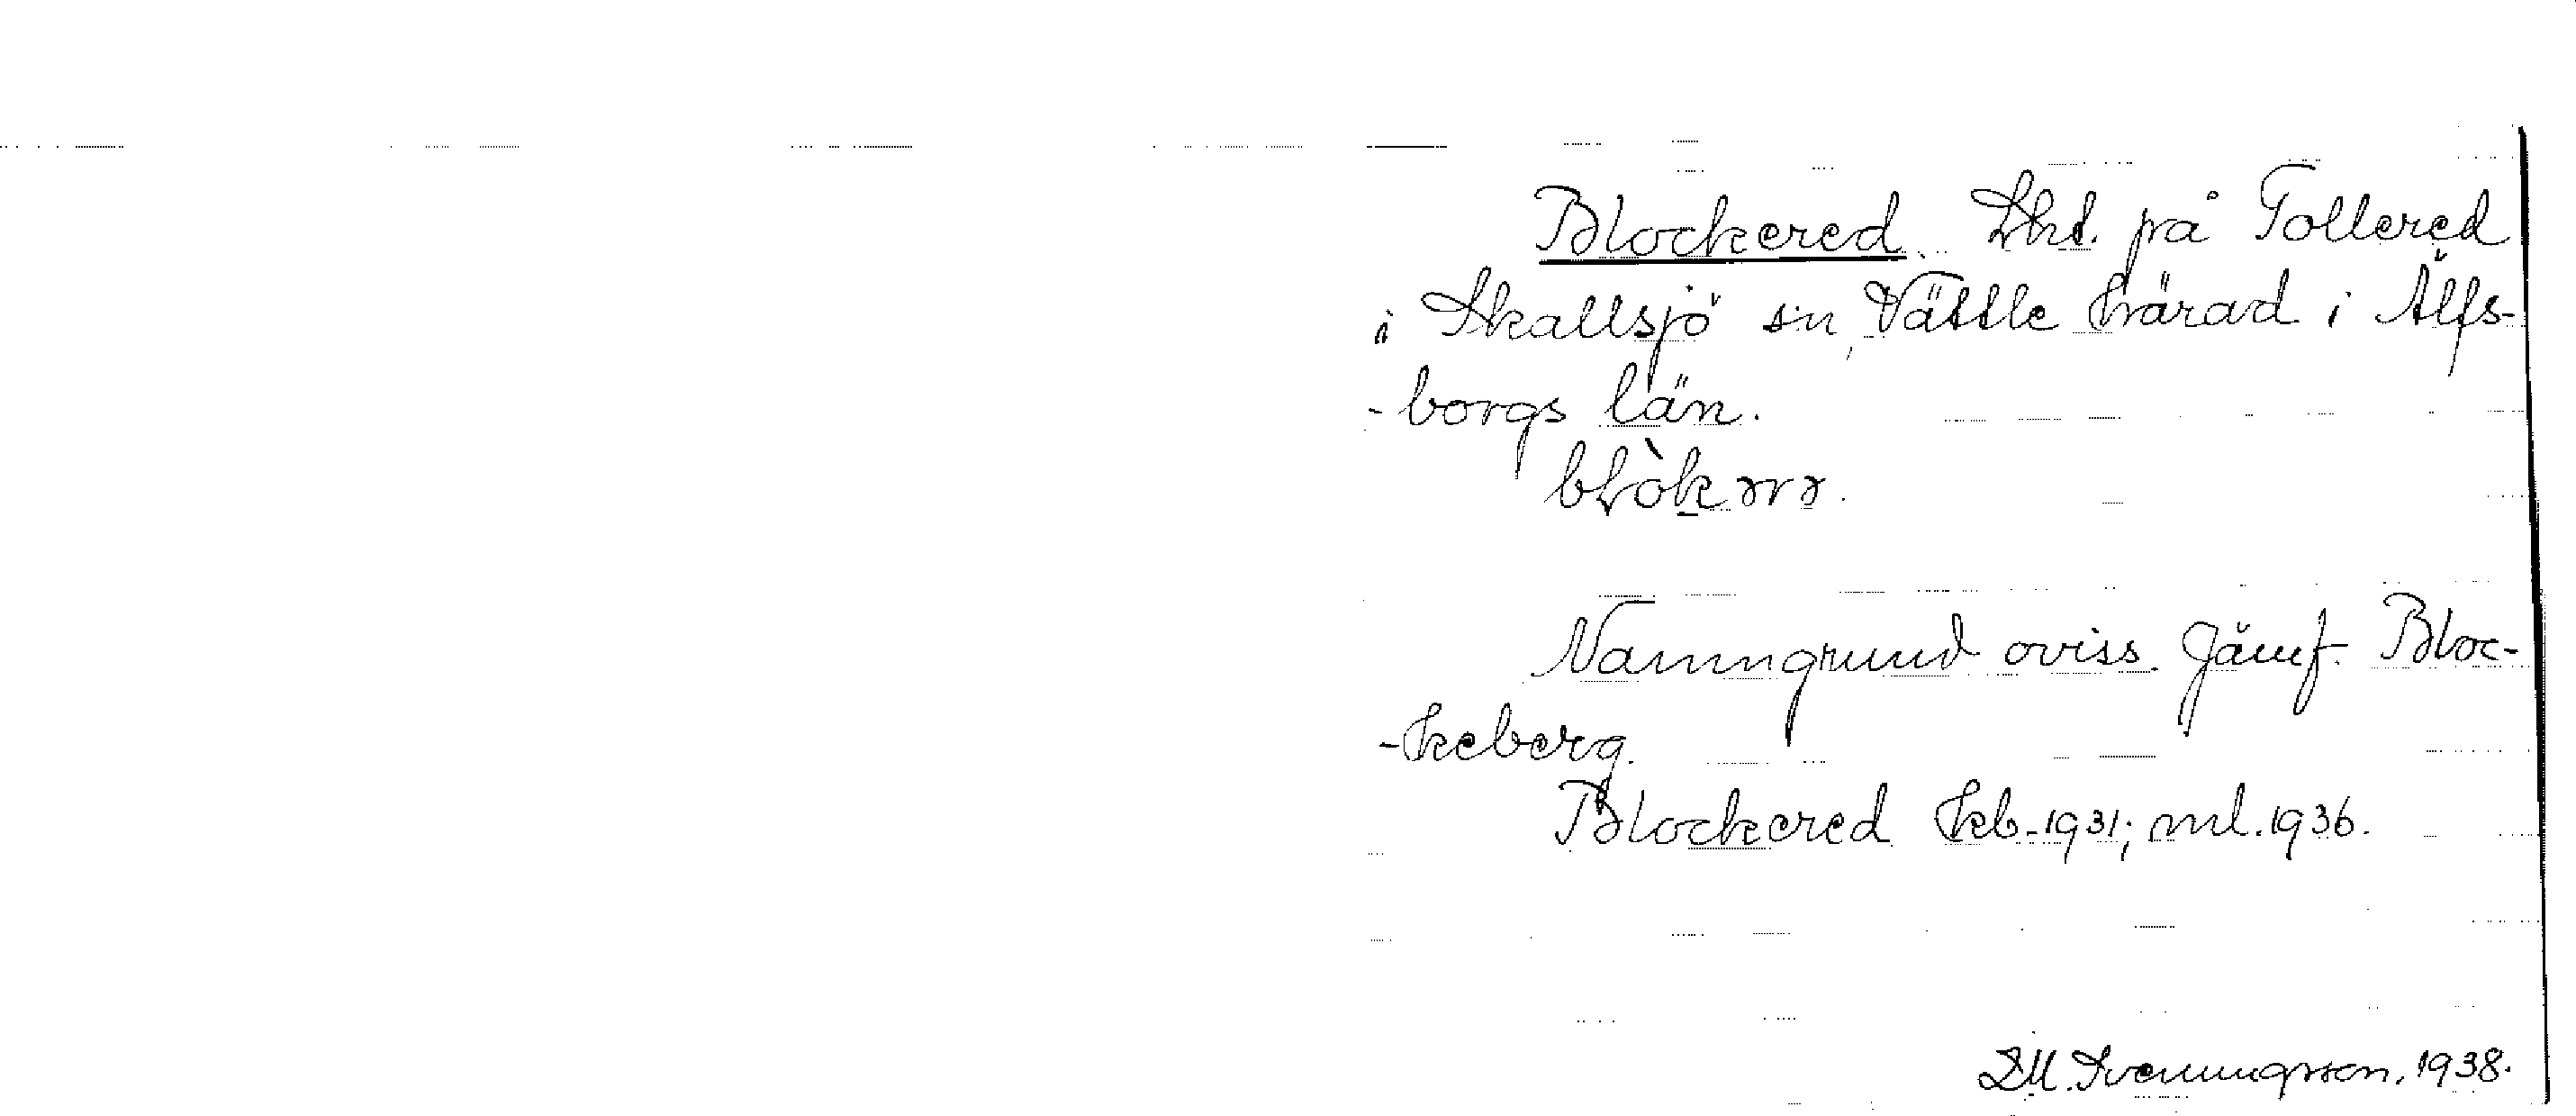 Blockered Lht. på Tollered
i Skallsjö sn, Vättle härad i Älfs-
-borgs län.
Namngrund oviss. Jämf. Bloc-
-keberg.
Blockered kb. 1931; ml. 1936.
D.M. Svenningsson, 1938.